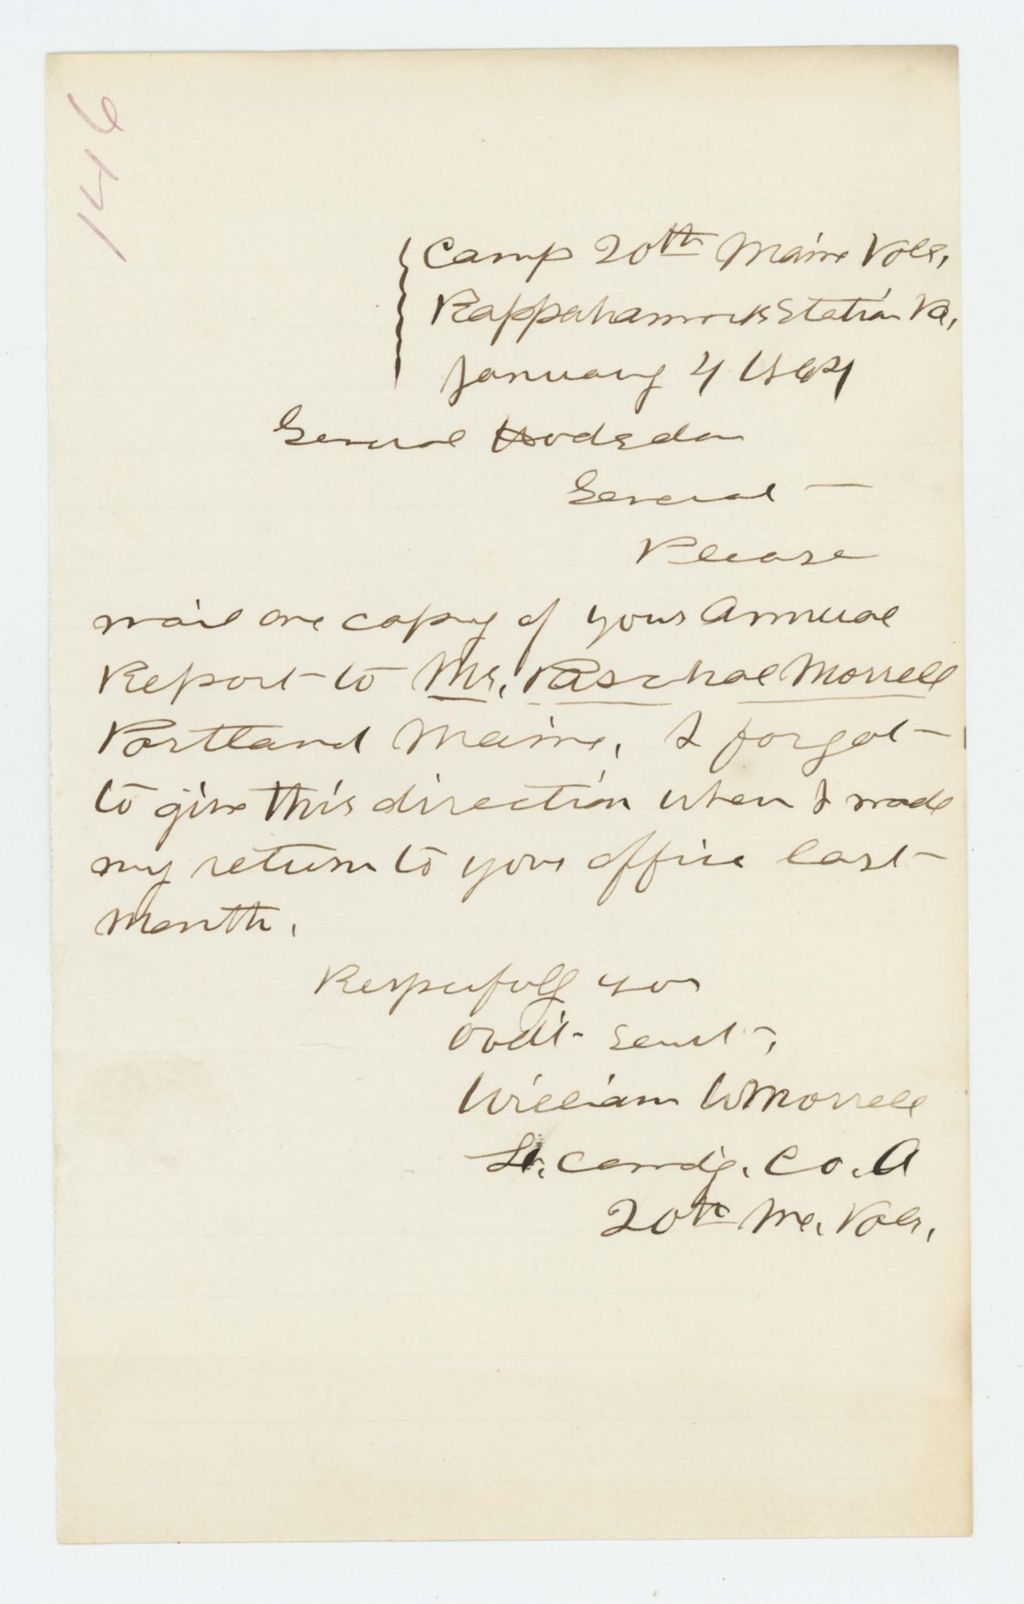 146
Camp 20th Maine Vols,
Rappahannock Station Va,
January 4 1864
General Hodsdon
General —
Please
mail one copy of your Annual
Report to Mr. Paschal Morrell
Portland Maine, I forgot
to give this direction when I made
my return to your office last
month.
Respectfully your
Obdt Servt,
William W Morrell
Lt. Comdg. Co. A
20th Me. Vols.